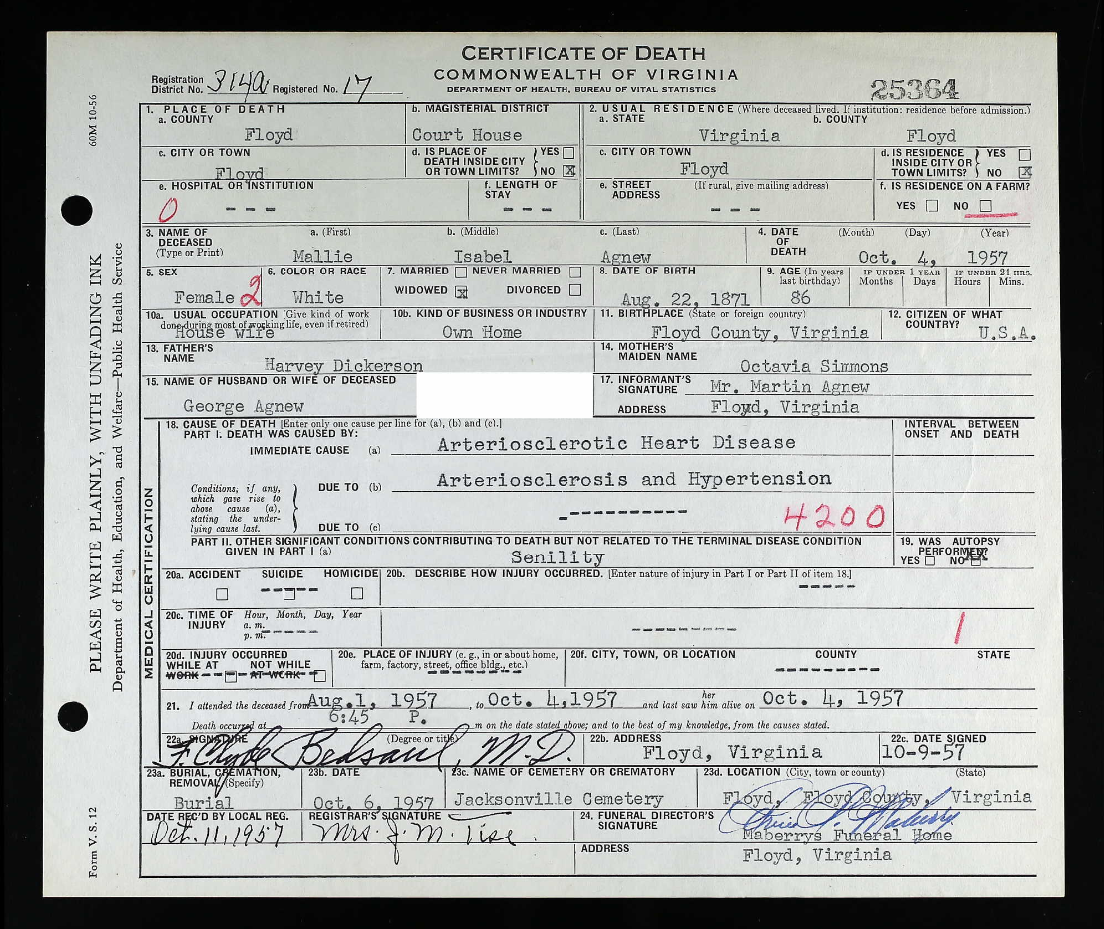 CERTIFICATE OF DEATH
COMMONWEALTH OF VIRGINIA
DEPARTMENT OF HEALTH, BUREAU OF VITAL STATISTICS
Registration District No. 314a Registered No. 17
25364
60M 10-56
PLEASE WRITE PLAINLY, WITH UNFADING INK
Department of Health, Education, and Welfare—Public Health Service
Form V. S. 12
1. PLACE OF DEATH
a. COUNTY
Floyd
b. MAGISTERIAL DISTRICT
Court House
2. USUAL RESIDENCE (Where deceased lived. If institution: residence before admission.)
a. STATE b. COUNTY
Virginia Floyd
c. CITY OR TOWN
Floyd
d. IS PLACE OF DEATH INSIDE CITY OR TOWN LIMITS? YES NO X
c. CITY OR TOWN
Floyd
d. IS RESIDENCE INSIDE CITY OR TOWN LIMITS? YES NO X
e. HOSPITAL OR INSTITUTION
0 - - -
f. LENGTH OF STAY
- - -
e. STREET ADDRESS (If rural, give mailing address)
- - -
f. IS RESIDENCE ON A FARM?
YES NO
3. NAME OF DECEASED (Type or Print)
a. (First) b. (Middle) c. (Last)
Mallie Isabel Agnew
4. DATE OF DEATH (Month) (Day) (Year)
Oct. 4, 1957
5. SEX
Female 2
6. COLOR OR RACE
White
7. MARRIED NEVER MARRIED
WIDOWED X DIVORCED
8. DATE OF BIRTH
Aug. 22, 1871
9. AGE (In years last birthday)
86
IF UNDER 1 YEAR
Months Days
IF UNDER 24 HRS.
Hours Mins.
10a. USUAL OCCUPATION (Give kind of work done during most of working life, even if retired)
House wife
10b. KIND OF BUSINESS OR INDUSTRY
Own Home
11. BIRTHPLACE (State or foreign country)
Floyd County, Virginia
12. CITIZEN OF WHAT COUNTRY?
U.S.A.
13. FATHER'S NAME
Harvey Dickerson
14. MOTHER'S MAIDEN NAME
Octavia Simmons
15. NAME OF HUSBAND OR WIFE OF DECEASED
George Agnew
17. INFORMANT'S SIGNATURE Mr. Martin Agnew
ADDRESS Floyd, Virginia
MEDICAL CERTIFICATION
18. CAUSE OF DEATH [Enter only one cause per line for (a), (b) and (c).]
PART I: DEATH WAS CAUSED BY:
IMMEDIATE CAUSE (a) Arteriosclerotic Heart Disease
INTERVAL BETWEEN ONSET AND DEATH
Conditions, if any, which gave rise to above cause (a), stating the underlying cause last.
DUE TO (b) Arteriosclerosis and Hypertension
DUE TO (c) -----------
4200
PART II. OTHER SIGNIFICANT CONDITIONS CONTRIBUTING TO DEATH BUT NOT RELATED TO THE TERMINAL DISEASE CONDITION GIVEN IN PART I (a)
Senility
19. WAS AUTOPSY PERFORMED?
YES NO
20a. ACCIDENT SUICIDE HOMICIDE
20b. DESCRIBE HOW INJURY OCCURRED. [Enter nature of injury in Part I or Part II of item 18.]
-----
20c. TIME OF INJURY Hour, Month, Day, Year
a. m.
p. m. -----
--------
1
20d. INJURY OCCURRED
WHILE AT WORK NOT WHILE AT WORK
20e. PLACE OF INJURY (e. g., in or about home, farm, factory, street, office bldg., etc.)
20f. CITY, TOWN, OR LOCATION COUNTY STATE
21. I attended the deceased from Aug.1, 1957, to Oct. 4,1957 and last saw her him alive on Oct. 4, 1957
Death occurred at 6:45 P. m on the date stated above; and to the best of my knowledge, from the causes stated.
22a. SIGNATURE (Degree or title)
F. Clyde Bedsaul, M.D.
22b. ADDRESS
Floyd, Virginia
22c. DATE SIGNED
10-9-57
23a. BURIAL, CREMATION, REMOVAL (Specify)
Burial
23b. DATE
Oct. 6, 1957
23c. NAME OF CEMETERY OR CREMATORY
Jacksonville Cemetery
23d. LOCATION (City, town or county) (State)
Floyd, Floyd County, Virginia
DATE REC'D BY LOCAL REG.
Oct. 11, 1957
REGISTRAR'S SIGNATURE
Mrs. J. M. Tise.
24. FUNERAL DIRECTOR'S SIGNATURE
Maberrys Funeral Home
ADDRESS
Floyd, Virginia